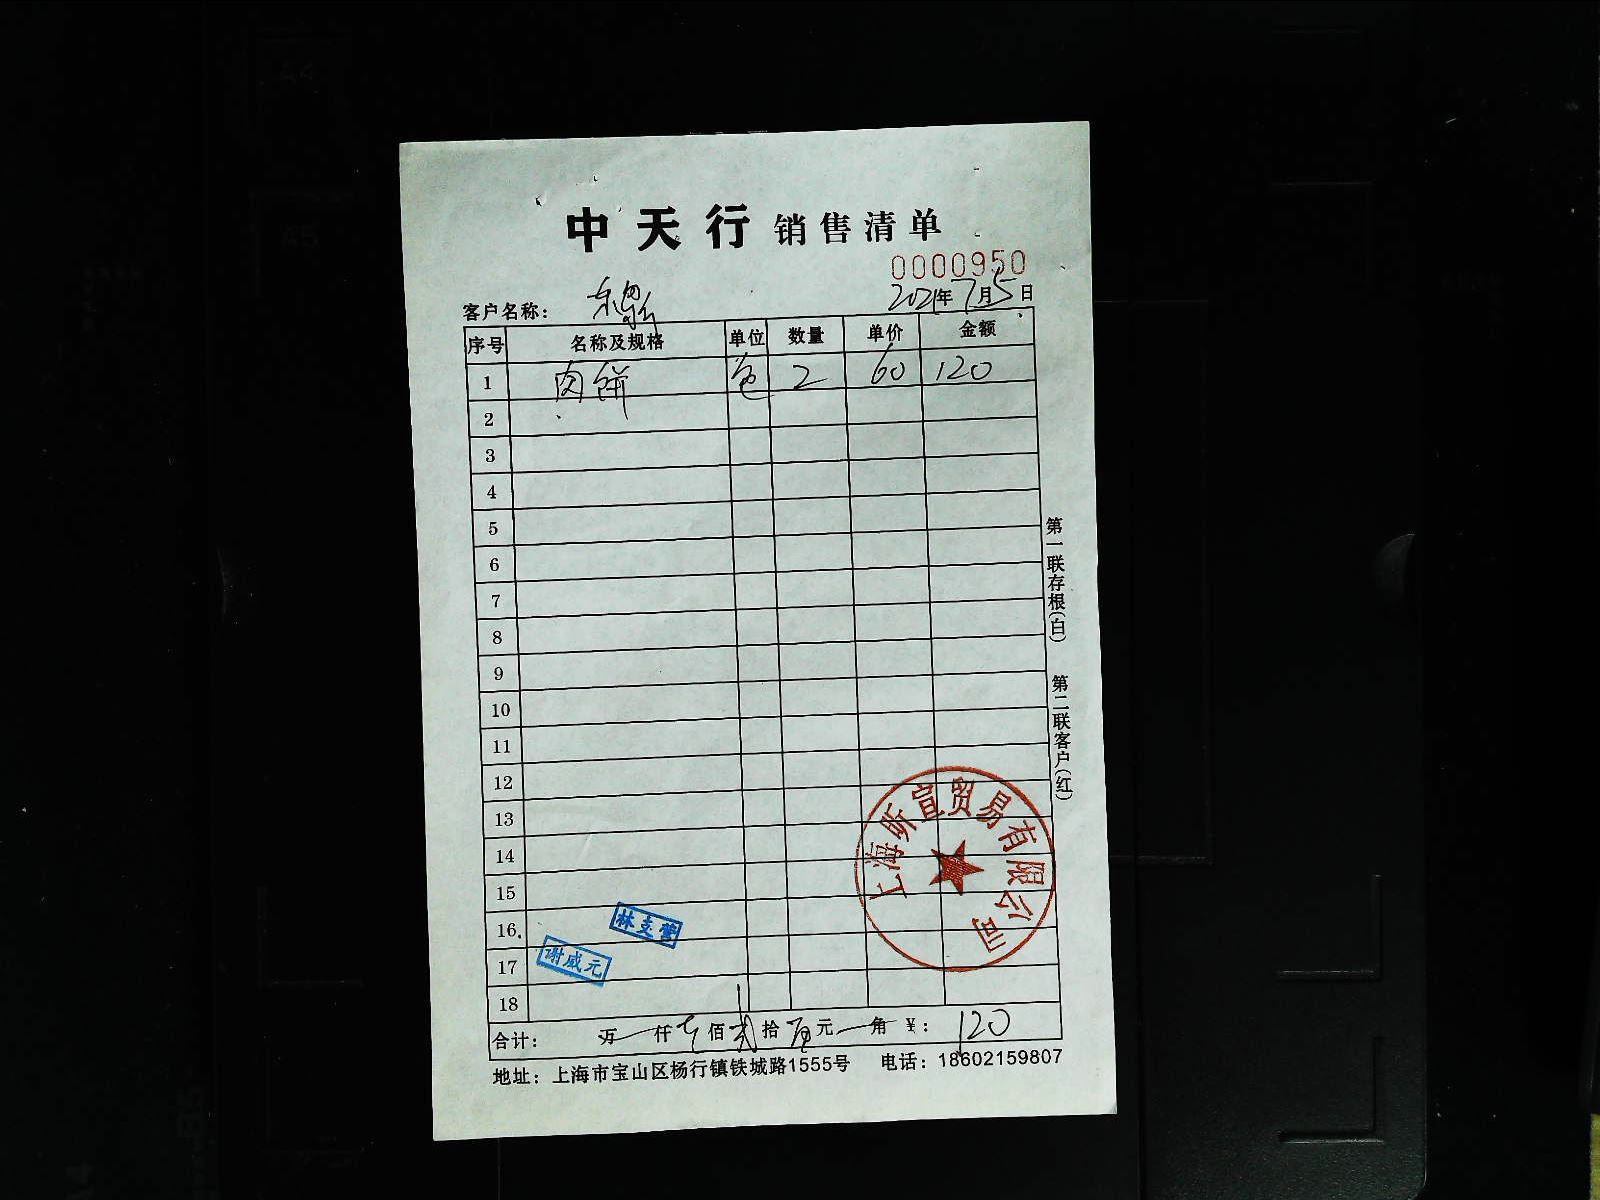 中天行 销售清单
0000950
客户名称： 2021年7月5日
序号 名称及规格 单位 数量 单价 金额
1 肉饼 包 2 60 120
2
3
4
5
6
7
8
9
10
11
12
13
14
15
16
17
18
林支营
谢威元
上海昕宣贸易有限公司
合计： 万 仟 佰 贰 拾 元 角 ¥： 120
地址：上海市宝山区杨行镇铁城路1555号 电话：18602159807
第一联存根(白) 第二联客户(红)